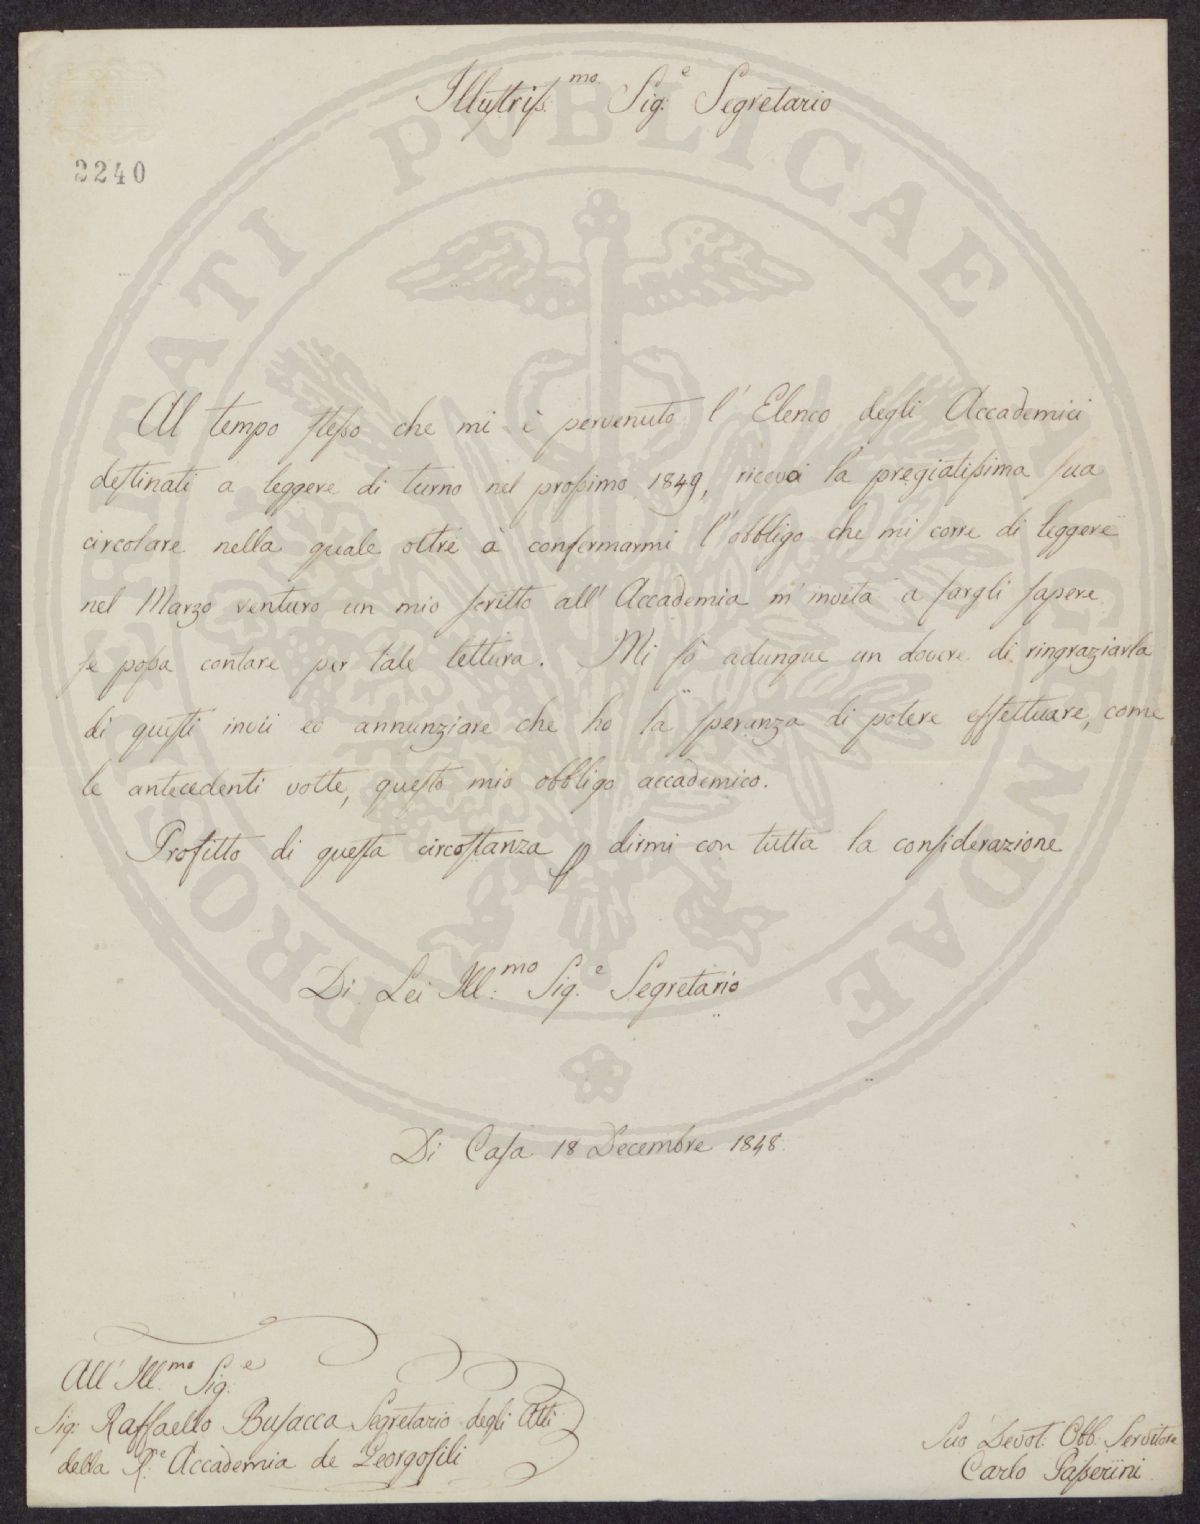 Illustris.mo Sig.e Segretario
2240
PROSPERITATI PUBLICAE AUGENDAE
Al tempo stesso che mi è pervenuto l'Elenco degli Accademici
destinati a leggere di turno nel prossimo 1849, ricevei la pregiatissima sua
circolare nella quale oltre a confermarmi l'obbligo che mi corre di leggere
nel Marzo venturo un mio scritto all'Accademia m'invita a fargli sapere
se possa contare per tale lettura. Mi fò adunque un dovere di ringraziarla
di questi invii ed annunziare che ho la speranza di potere effettuare, come
le antecedenti volte, questo mio obbligo accademico.
Profitto di questa circostanza p dirmi con tutta la considerazione
Di Lei Ill.mo Sig.e Segretario
Di Casa 18 Decembre 1848.
All'Ill.mo Sig.e
Sig. Raffaello Busacca Segretario degli Atti
della R.e Accademia de Georgofili
Suo Devot. Obb. Servitore
Carlo Passerini